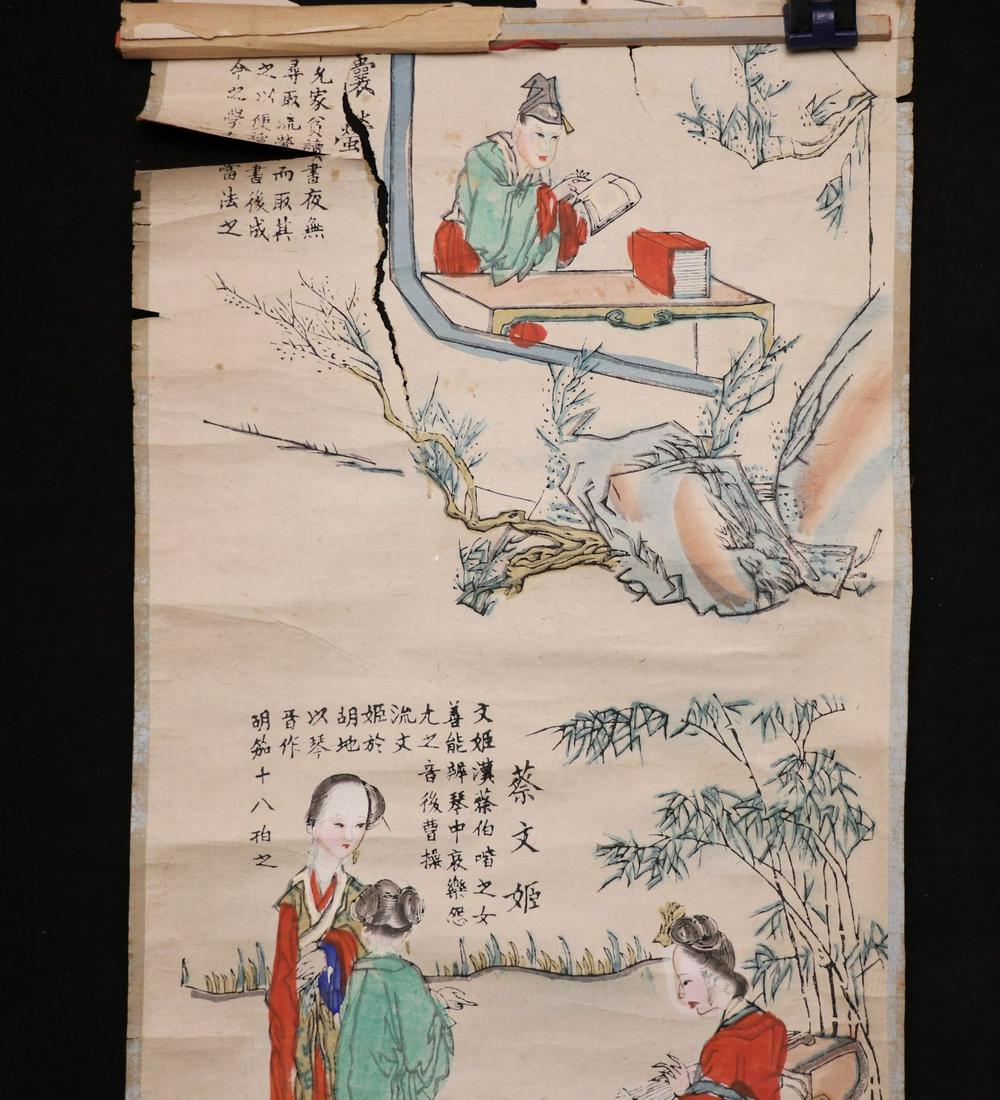 囊螢
允家貧讀書夜無
尋取流螢而取其
之以便讀書後成
今之學當法之
蔡文姬
文姬漢蔡伯喈之女
善能辨琴中哀樂怨
尤之音後曹操
流文
姬於
胡地
以琴
晉作
胡笳十八拍之